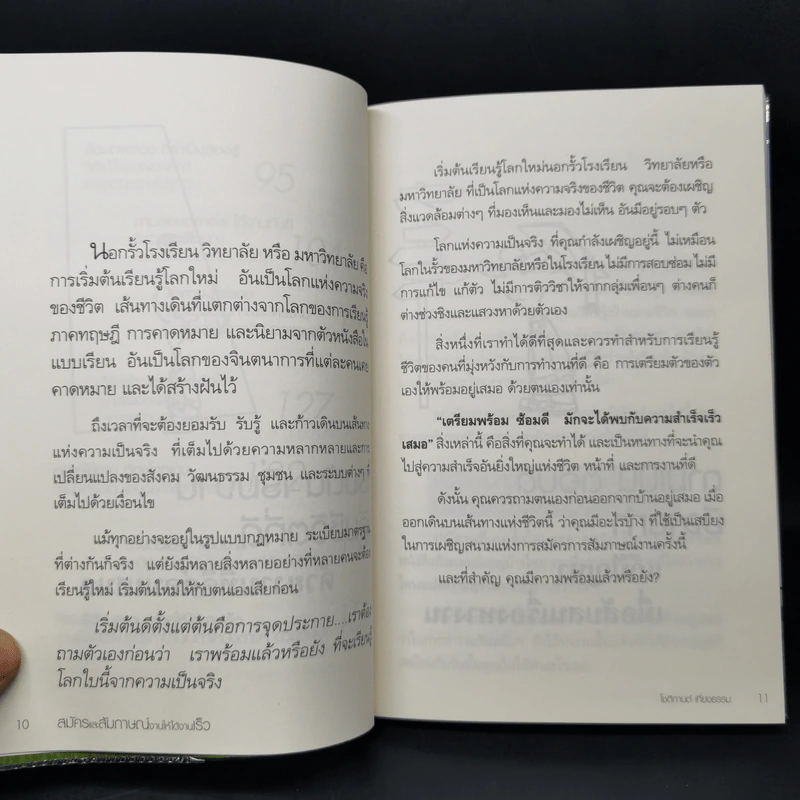 นอกรั้วโรงเรียน วิทยาลัย หรือ มหาวิทยาลัย คือ
การเริ่มต้นเรียนรู้โลกใหม่ อันเป็นโลกแห่งความจริง
ของชีวิต เส้นทางเดินที่แตกต่างจากโลกของการเรียนรู้
ภาคทฤษฎี การคาดหมาย และนิยามจากตัวหนังสือใน
แบบเรียน อันเป็นโลกของจินตนาการที่แต่ละคนเคย
คาดหมาย และได้สร้างฝันไว้
ถึงเวลาที่จะต้องยอมรับ รับรู้ และก้าวเดินบนเส้นทาง
แห่งความเป็นจริง ที่เต็มไปด้วยความหลากหลายและการ
เปลี่ยนแปลงของสังคม วัฒนธรรม ชุมชน และระบบต่างๆ ที่
เต็มไปด้วยเงื่อนไข
แม้ทุกอย่างจะอยู่ในรูปแบบกฎหมาย ระเบียบมาตรฐาน
ที่ต่างกันก็จริง แต่ยังมีหลายสิ่งหลายอย่างที่หลายคนจะต้อง
เรียนรู้ใหม่ เริ่มต้นใหม่ให้กับตนเองเสียก่อน
เริ่มต้นดีตั้งแต่ต้นคือการจุดประกาย....เราต้อง
ถามตัวเองก่อนว่า เราพร้อมแล้วหรือยัง ที่จะเรียนรู้
โลกใบนี้จากความเป็นจริง
10 สมัครและสัมภาษณ์งานให้ได้งานเร็ว
เริ่มต้นเรียนรู้โลกใหม่นอกรั้วโรงเรียน วิทยาลัยหรือ
มหาวิทยาลัย ที่เป็นโลกแห่งความจริงของชีวิต คุณจะต้องเผชิญ
สิ่งแวดล้อมต่างๆ ที่มองเห็นและมองไม่เห็น อันมีอยู่รอบๆ ตัว
โลกแห่งความเป็นจริง ที่คุณกำลังเผชิญอยู่นี้ ไม่เหมือน
โลกในรั้วของมหาวิทยาลัยหรือในโรงเรียน ไม่มีการสอบซ่อม ไม่มี
การแก้ไข แก้ตัว ไม่มีการติววิชาให้จากกลุ่มเพื่อนๆ ต่างคนก็
ต่างช่วงชิงและแสวงหาด้วยตัวเอง
สิ่งหนึ่งที่เราทำได้ดีที่สุดและควรทำสำหรับการเรียนรู้
ชีวิตของคนที่มุ่งหวังกับการทำงานที่ดี คือ การเตรียมตัวของตัว
เองให้พร้อมอยู่เสมอ ด้วยตนเองเท่านั้น
“เตรียมพร้อม ซ้อมดี มักจะได้พบกับความสำเร็จเร็ว
เสมอ” สิ่งเหล่านี้ คือสิ่งที่คุณจะทำได้ และเป็นหนทางที่จะนำคุณ
ไปสู่ความสำเร็จอันยิ่งใหญ่แห่งชีวิต หน้าที่ และการงานที่ดี
ดังนั้น คุณควรถามตนเองก่อนออกจากบ้านอยู่เสมอ เมื่อ
ออกเดินบนเส้นทางแห่งชีวิตนี้ ว่าคุณมีอะไรบ้าง ที่ใช้เป็นเสบียง
ในการเผชิญสนามแห่งการสมัครการสัมภาษณ์งานครั้งนี้
และที่สำคัญ คุณมีความพร้อมแล้วหรือยัง?
โชติกานต์ เที่ยงธรรม 11